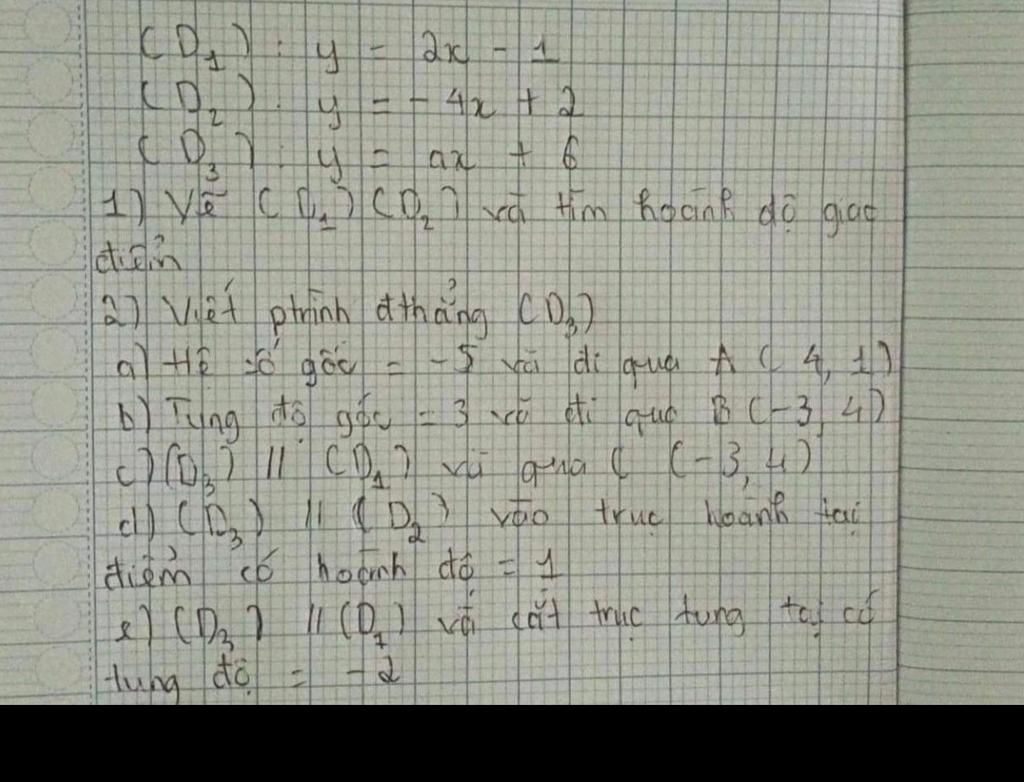 (D₁) : y = 2x - 1
(D₂) : y = - 4x + 2
(D₃) : y = ax + 6
1) Vẽ (D₁) (D₂) và tìm hoành độ giao
điểm
2) Viết ptrình đthẳng (D₃)
a) Hệ số góc = -5 và đi qua A (4, 1)
b) Tung độ góc = 3 và đi qua B (-3, 4)
c) (D₃) // (D₁) và qua C (-3, 4)
d) (D₃) // (D₂) vào trục hoành tại
điểm có hoành độ = 1
e) (D₃) // (D₁) và cắt trục tung tại có
tung độ = -2